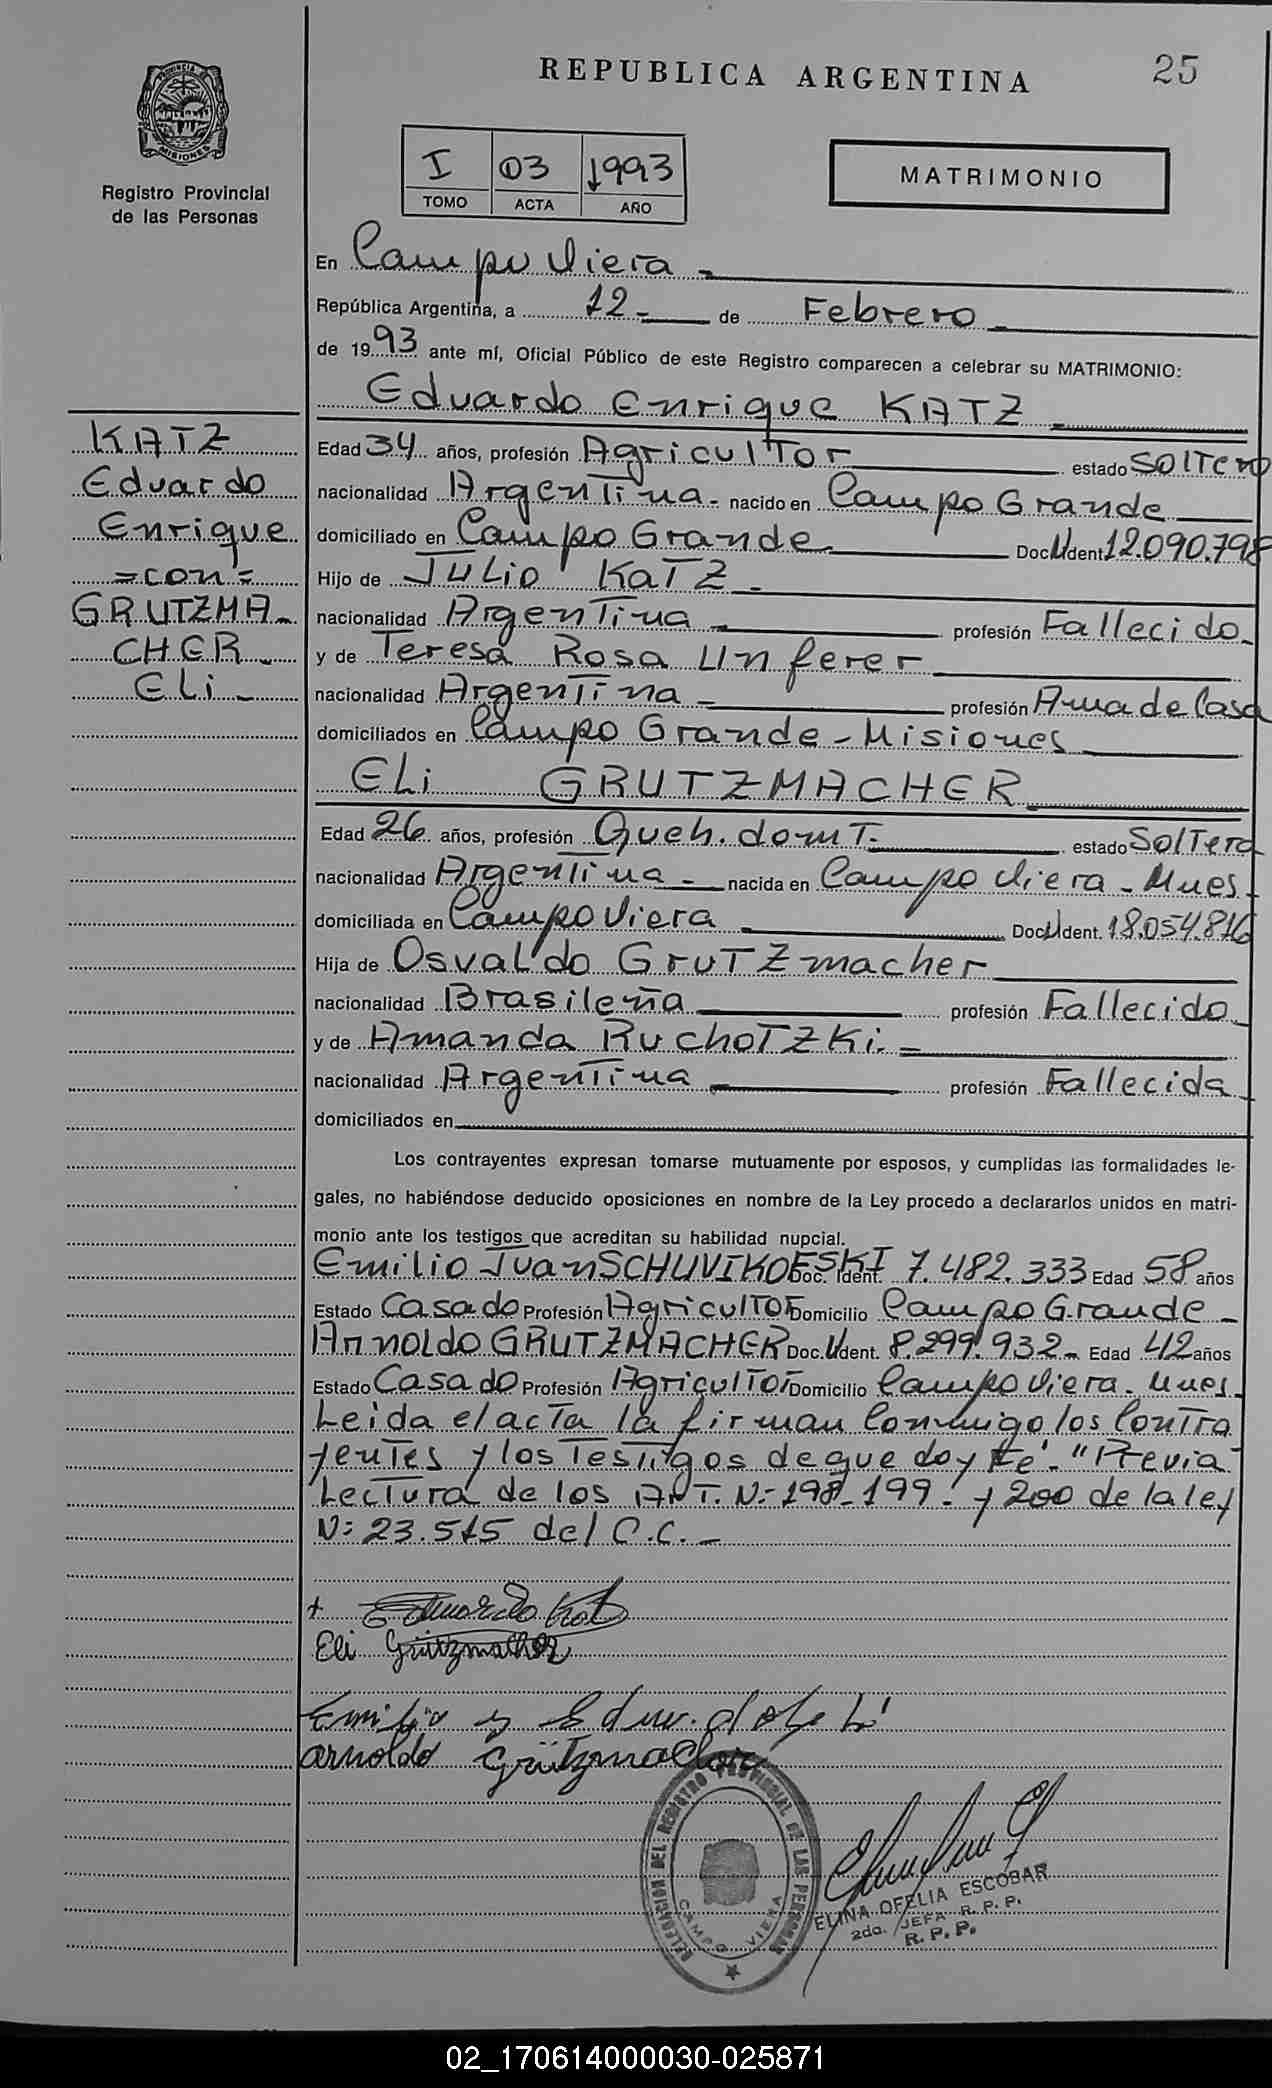 REPUBLICA ARGENTINA
25
PROVINCIA DE
MISIONES
Registro Provincial
de las Personas
I 03 1993
TOMO ACTA AÑO
MATRIMONIO
En Campo Viera -
República Argentina, a 12 - de Febrero
de 1993 ante mí, Oficial Público de este Registro comparecen a celebrar su MATRIMONIO:
Eduardo Enrique KATZ
KATZ
Eduardo
Enrique
=con=
GRUTZMA-
CHER -
ELi -
Edad 34 años, profesión Agricultor estado Soltero
nacionalidad Argentina - nacido en Campo Grande
domiciliado en Campo Grande Doc. Ident. 12.090.798
Hijo de JULio KATZ -
nacionalidad Argentina - profesión Fallecido -
y de Teresa Rosa Unferer
nacionalidad Argentina - profesión Ama de Casa
domiciliados en Campo Grande - Misiones
ELi GRUTZMACHER -
Edad 26 años, profesión Queh. domt. estado Soltera
nacionalidad Argentina - nacida en Campo Viera - Mnes -
domiciliada en Campo Viera - Doc. Ident. 18.054.816
Hija de Osvaldo Grutzmacher
nacionalidad Brasileña profesión Fallecido -
y de Amanda Ruchotzki. -
nacionalidad Argentina - profesión Fallecida -
domiciliados en
Los contrayentes expresan tomarse mutuamente por esposos, y cumplidas las formalidades le-
gales, no habiéndose deducido oposiciones en nombre de la Ley procedo a declararlos unidos en matri-
monio ante los testigos que acreditan su habilidad nupcial.
Emilio Juan SCHUVIKOESKI Doc. Ident. 7.482.333 Edad 58 años
Estado Casado Profesión Agricultor Domicilio Campo Grande -
Arnoldo GRUTZMACHER Doc. Ident. 8.299.932 - Edad 42 años
Estado Casado Profesión Agricultor Domicilio Campo Viera - Mnes -
Leida el acta la firman Conmigo los Contra
yentes y los Testigos de que doy fe'. "Previa
Lectura de los ART. N:-198-199- y 200 de la ley
N: 23.515 del C.C. -
+ Eduardo Katz
Eli Grützmacher
Emilio
arnoldo Grützmacher
DELEGACION DEL REGISTRO PROVINCIAL DE LAS PERSONAS
CAMPO VIERA
ELINA OFELIA ESCOBAR
2da. JEFA R. P. P.
R. P. P.
02_170614000030-025871